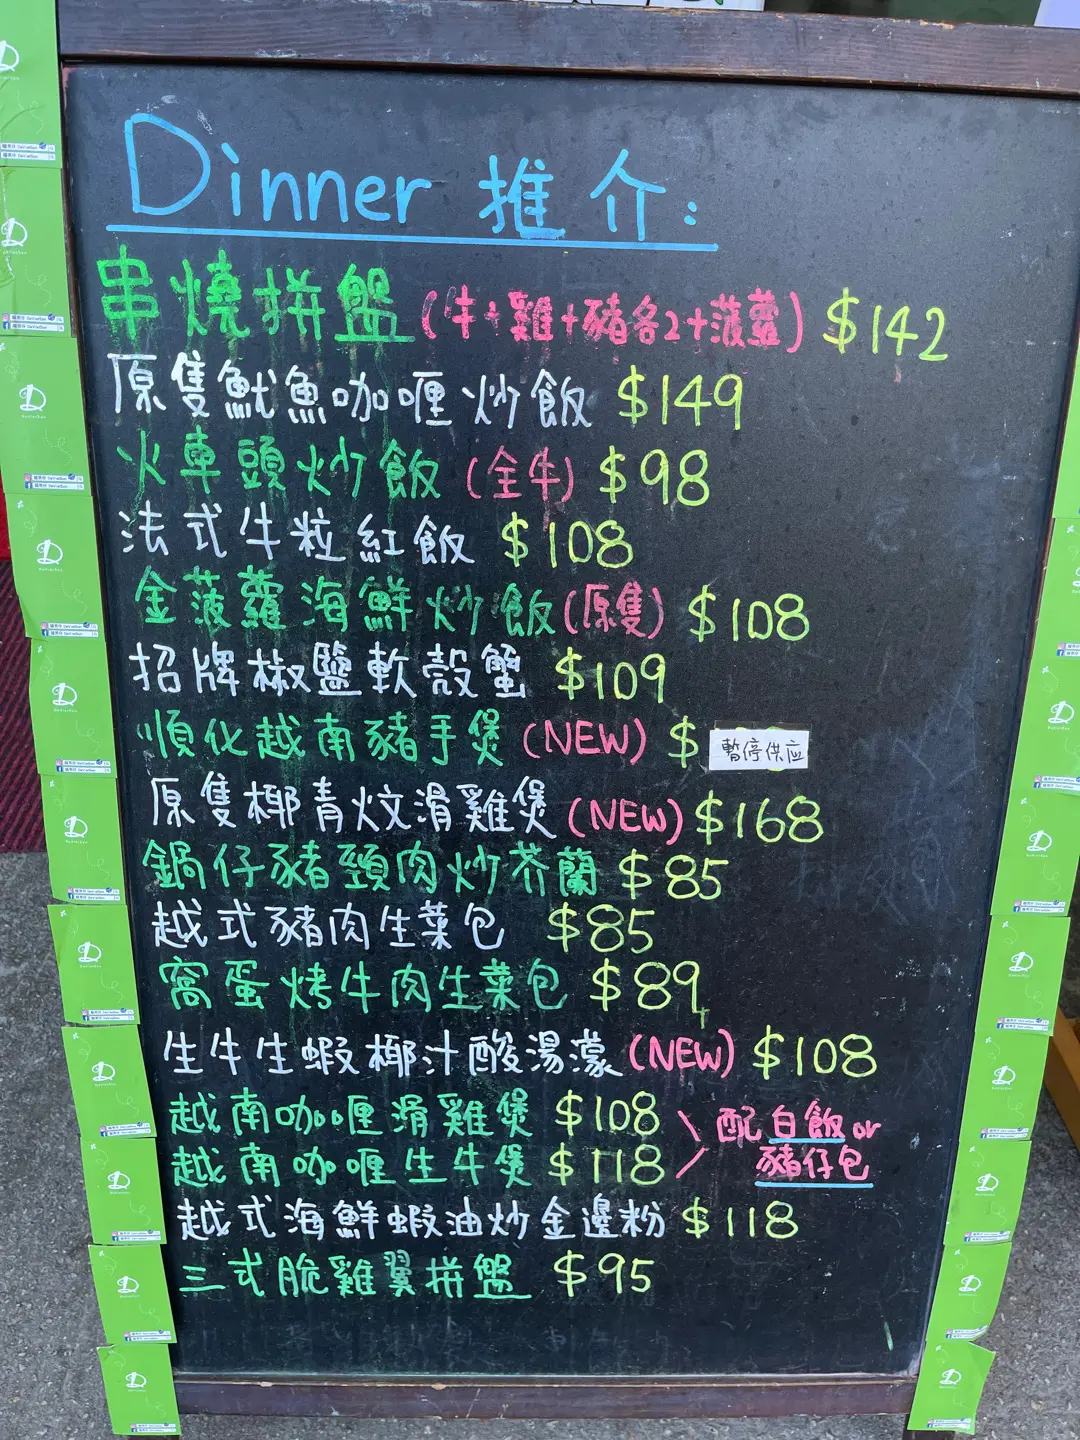 Dinner 推介:
串燒拼盤(牛+雞+豬各2+菠蘿) $142
原隻魷魚咖喱炒飯 $149
火車頭炒飯(全牛) $98
法式牛粒紅飯 $108
金菠蘿海鮮炒飯(原隻) $108
招牌椒鹽軟殼蟹 $109
順化越南豬手煲(NEW) $ 暫停供应
原隻椰青炆滑雞煲(NEW) $168
鍋仔豬頸肉炒芥蘭 $85
越式豬肉生菜包 $85
窩蛋烤牛肉生菜包 $89
生牛生蝦椰汁酸湯濛(NEW) $108
越南咖喱滑雞煲 $108
越南咖喱生牛煲 $118
配白飯or
豬仔包
越式海鮮蝦油炒金邊粉 $118
三式脆雞翼拼盤 $95